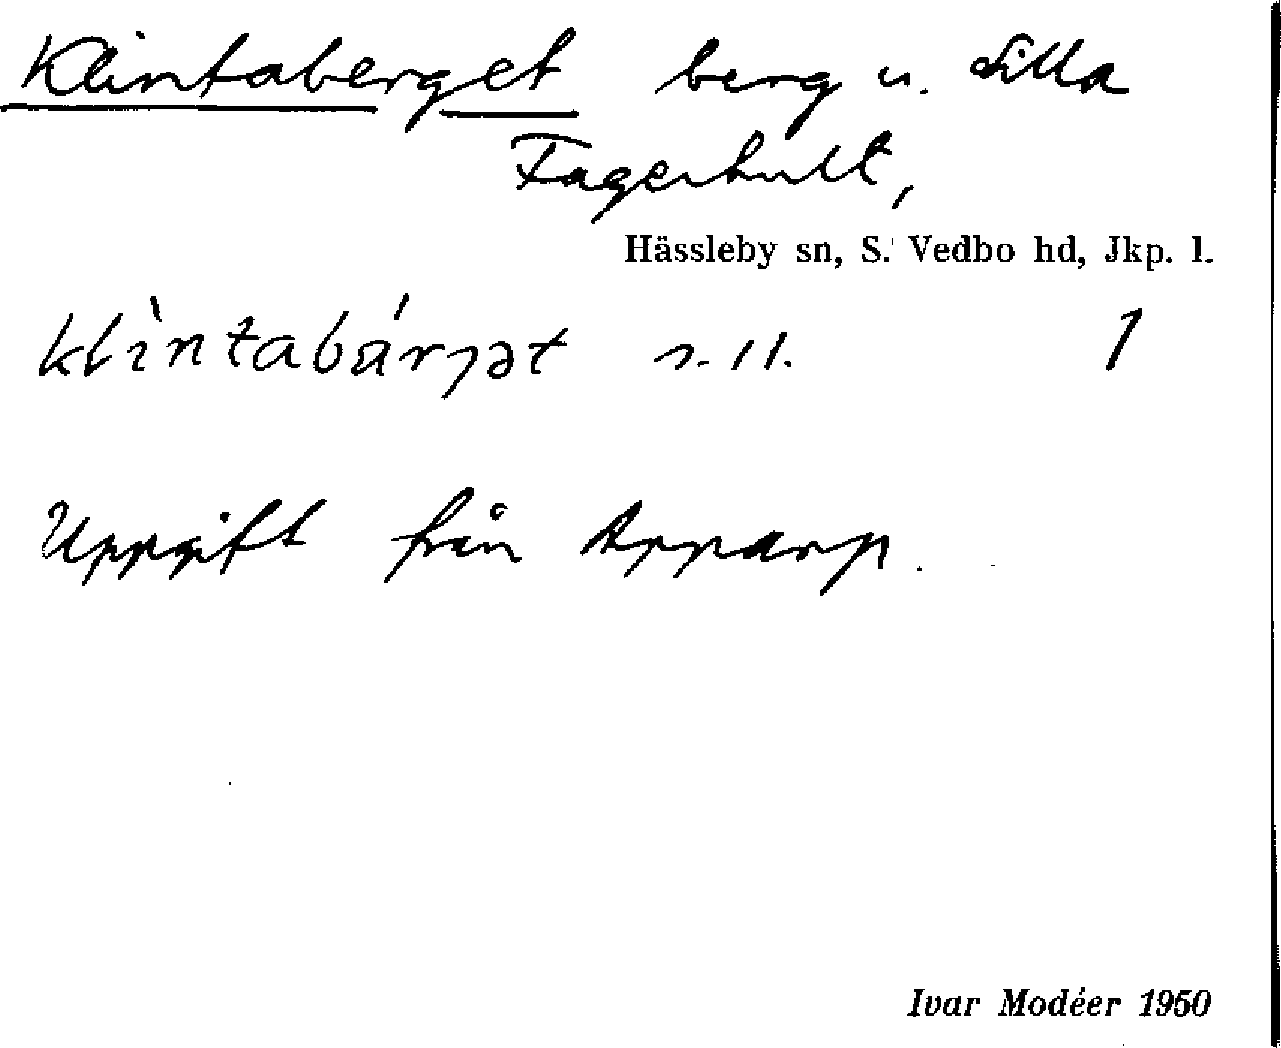 Klintaberget berg u. Lilla
Fagerhult,
Hässleby sn, S. Vedbo hd, Jkp. l.
klìntabárjət 1
Uppgift från Apparp.
Ivar Modéer 1950